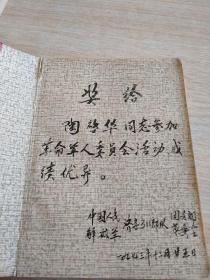 奖给
陶 华同志参加
革命军人委员会活动成
绩优异。
中国人民
解放军 部队
一九七三年十二月廿五日